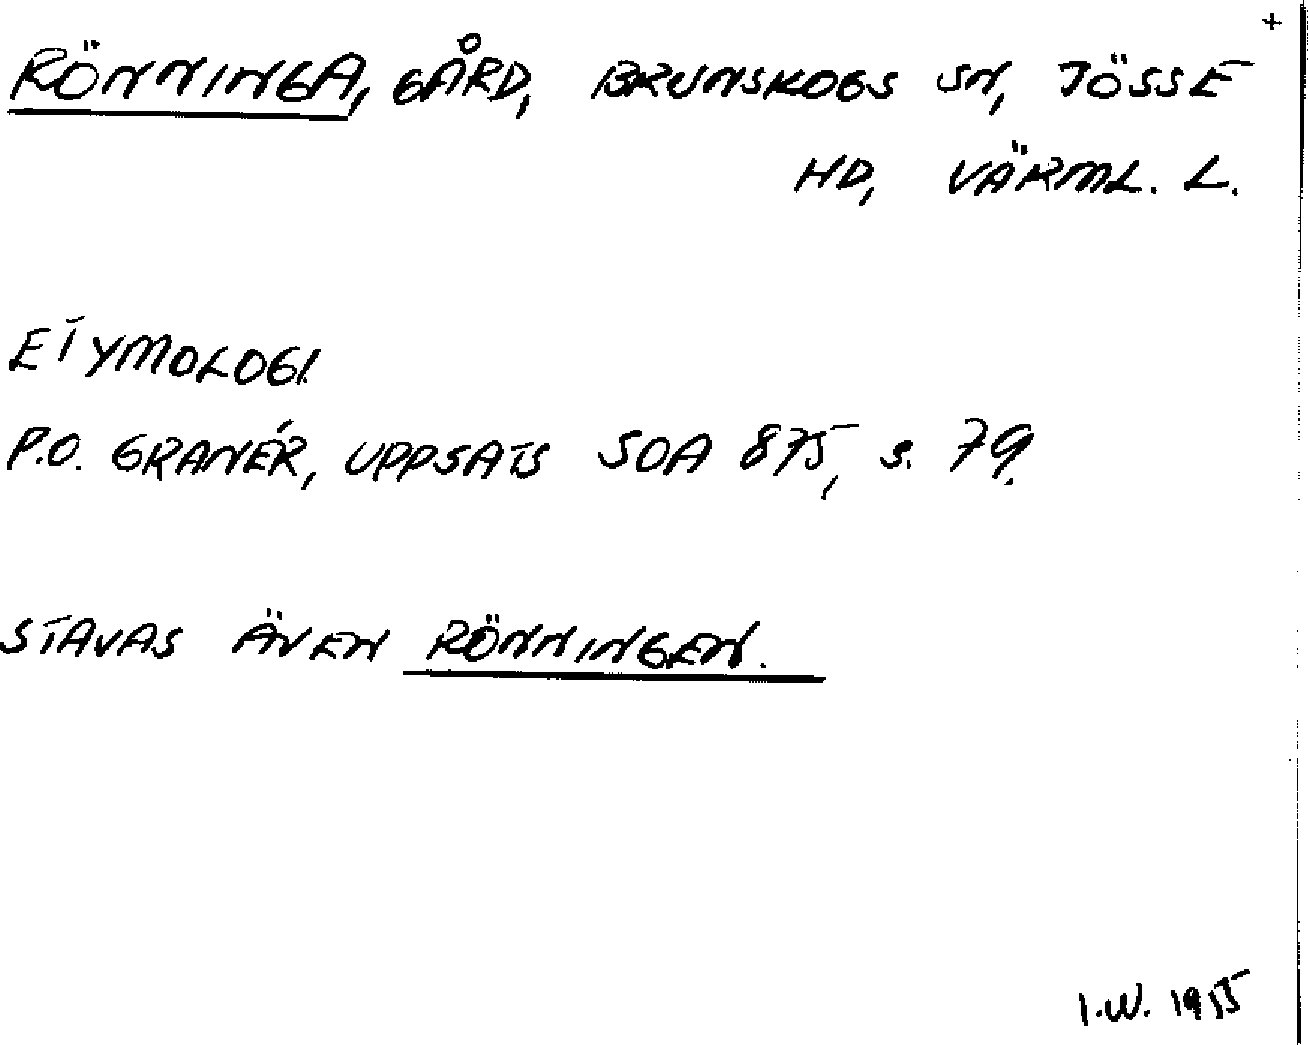 +
RÖNNINGA, GÅRD, BRUNSKOGS SN, JÖSSE
HD, VÄRML. L.
ETYMOLOGI.
P.O. GRANÉR, UPPSATS SOA 875, s. 79.
STAVAS ÄVEN RÖNNINGEN.
I.W. 1955